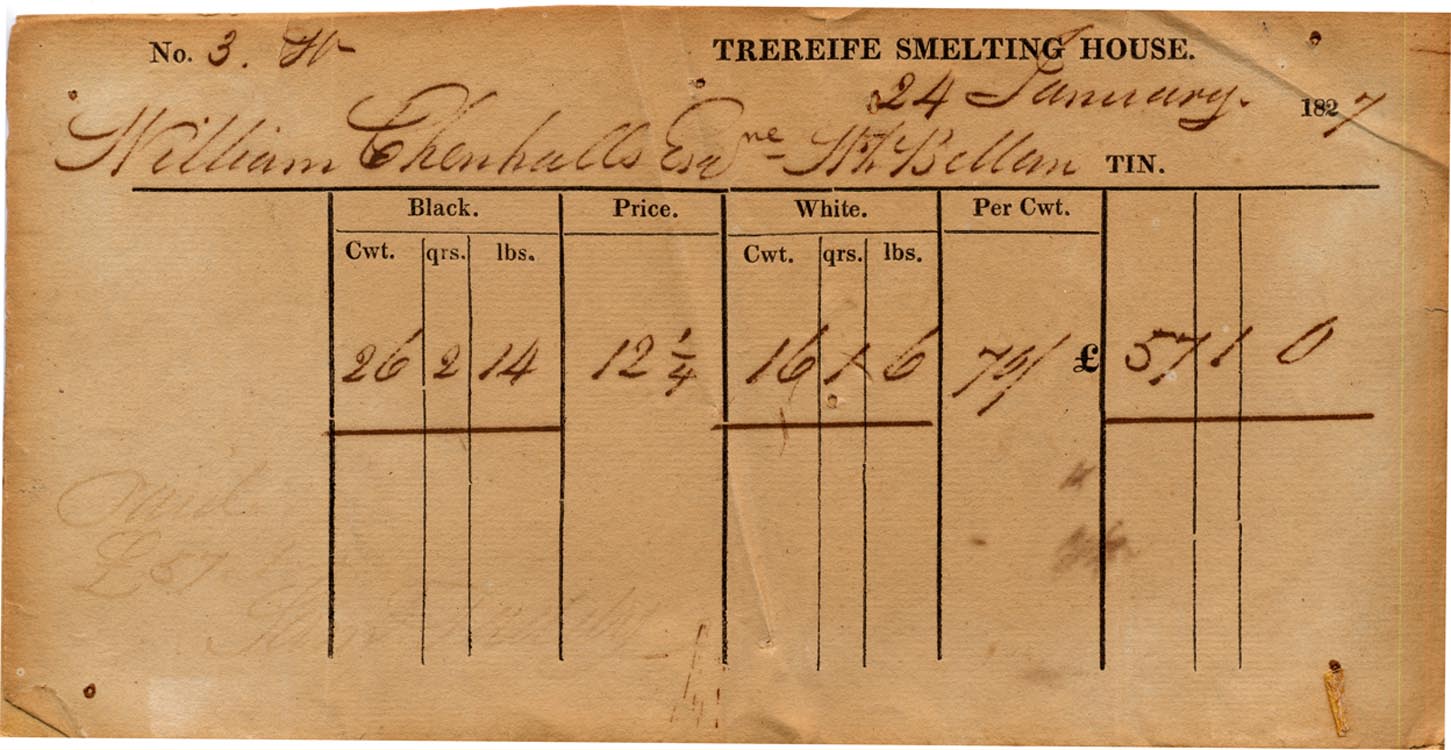 No. 3. TREREIFE SMELTING HOUSE.
24 January. 1827
William Chenhalls Esqre Wh Bellon TIN.
Black. Price. White. Per Cwt.
Cwt. qrs. lbs. Cwt. qrs. lbs.
26 2 14 12 1/4 16 1 6 70/ £ 57 1 0
Paid
£57